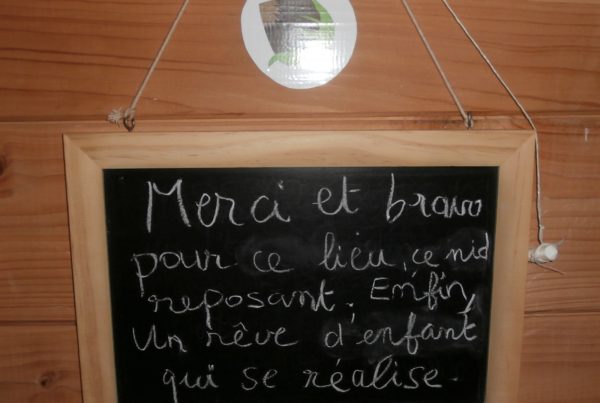 Merci et bravo
pour ce lieu, ce nid
reposant. Enfin,
Un rêve d'enfant
qui se réalise.